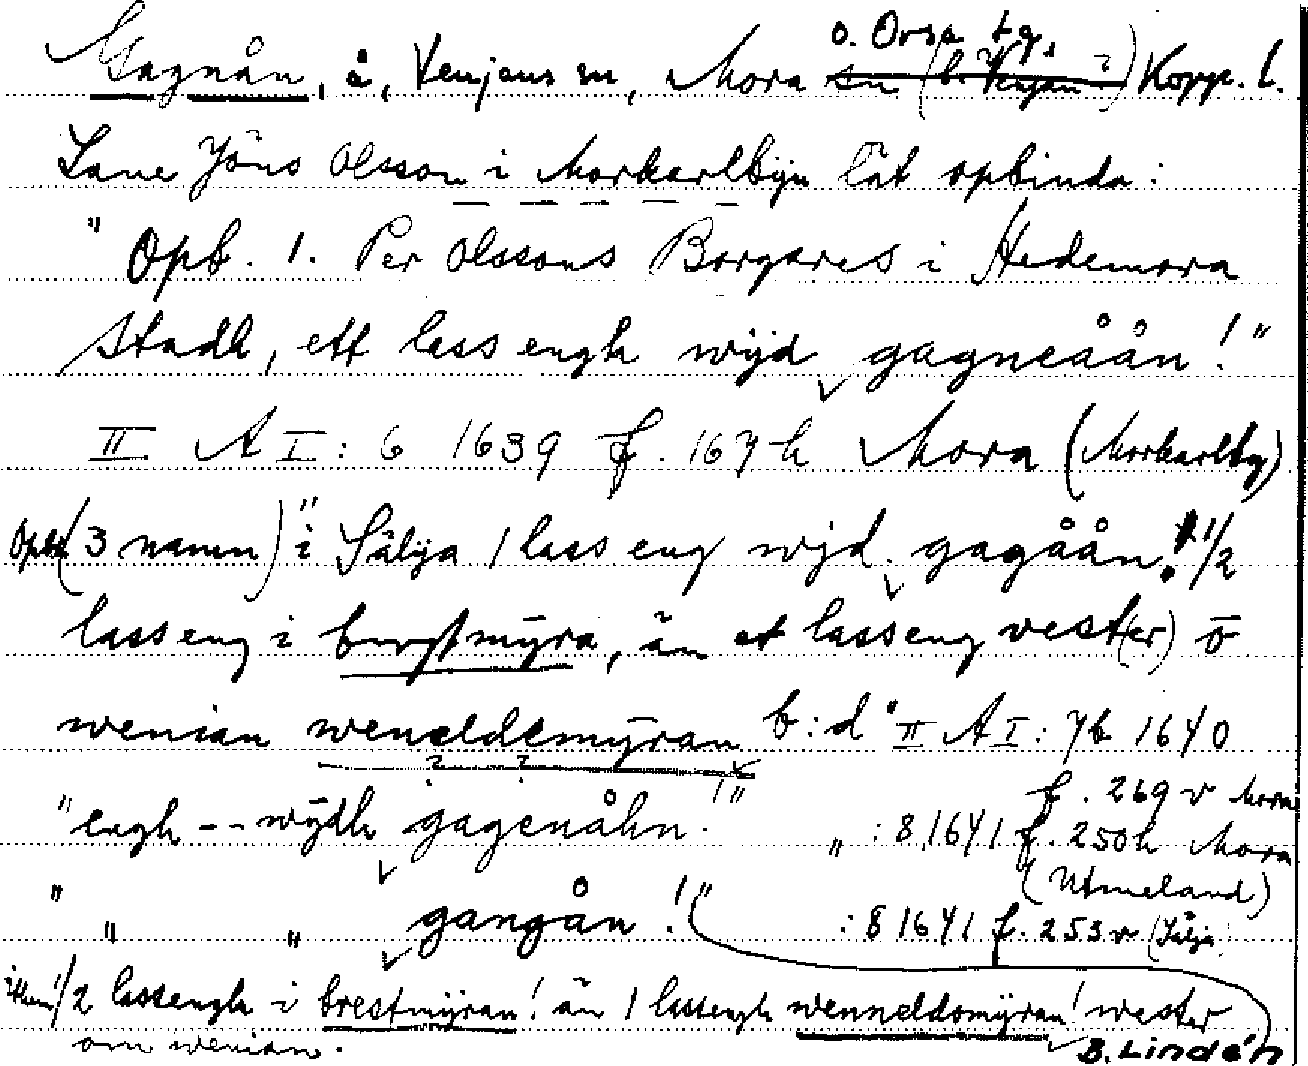 o. Orsa tg,
Gagnån, å, Venjans sn, Mora sn (b. Venjan ?) Kopp. l.
Lane Jöns Olsson i Morkarlbijn låt opbinda:
"Opb. 1. Per Olssons Borgares i Hedemora
Stadh, ett lass engh wijd gagneåån!"
II A I: 6 1639 f. 167 h Mora (Morkarlby)
(3 namn) "i Sälja 1 lass eng wijd gagåån! 1/2
lass eng i burstmÿra, än et lasseng vest(er) o
wenian weneldemÿran b:d" II A I: 7b 1640
f. 269 v Mora
"engh -- wÿdh gagenåhn!" " : 8 1641 f. 250 h Mora
(Utmeland)
" " " gangån!" : 8 1641 f. 253 v (Sälja)
1/2 lassengh i brestmÿran! än 1 lassengh wenneldomÿran! wester
om wenian.
B. Lindén